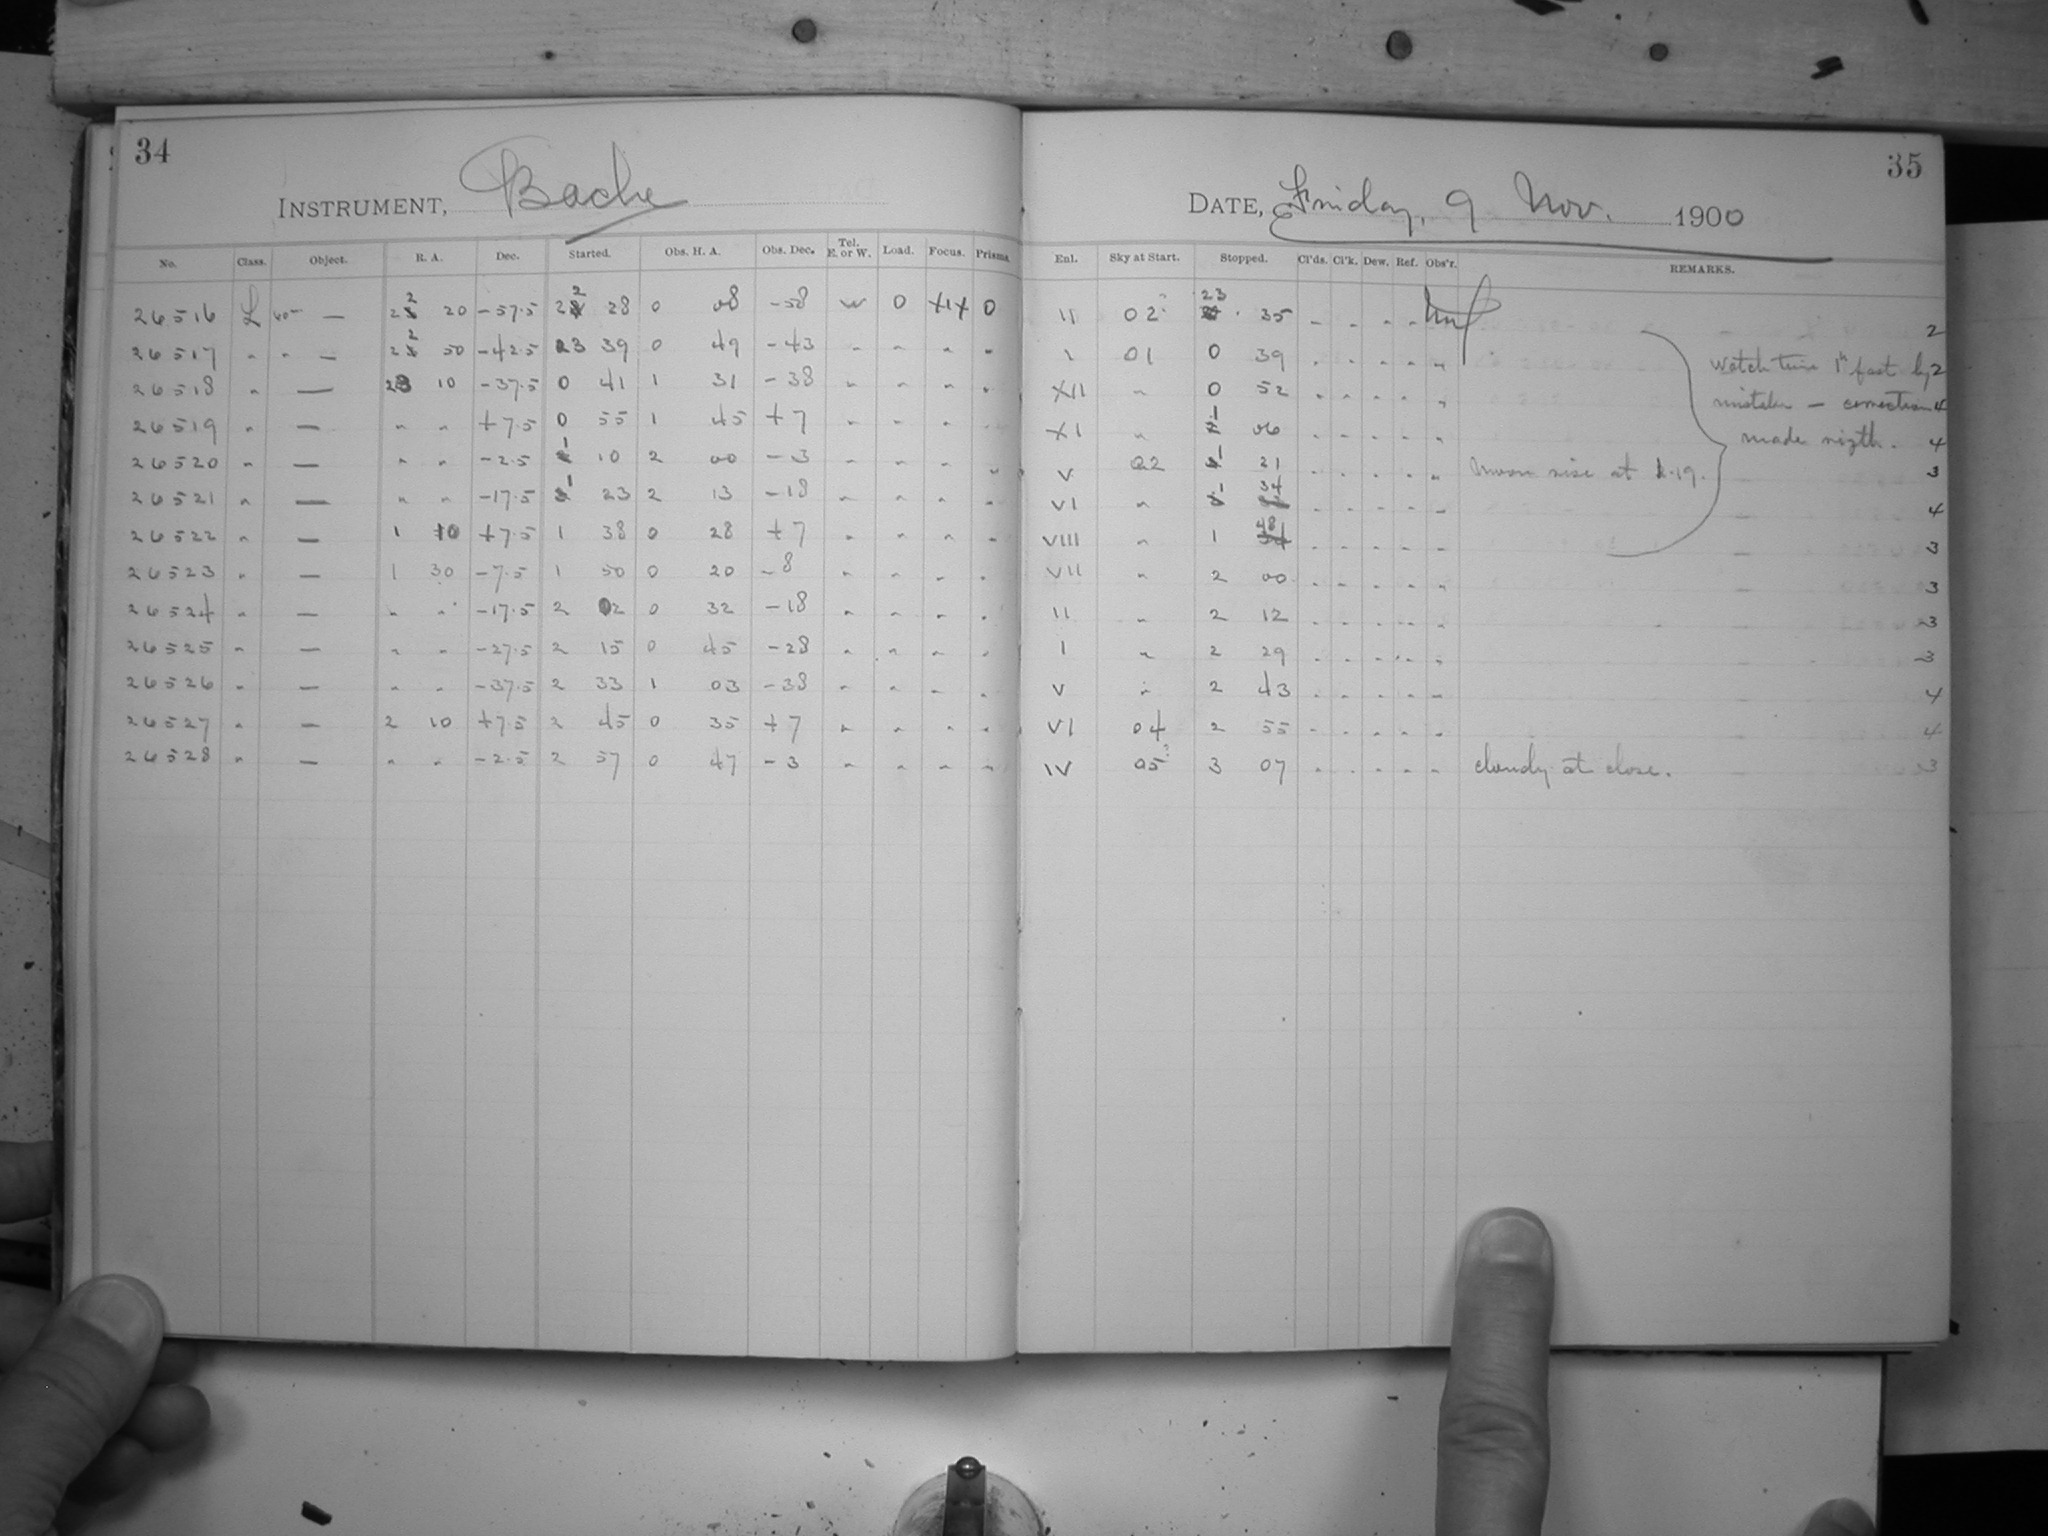 34
INSTRUMENT, Bache
No. Class. Object. R. A. Dec. Started. Obs. H. A. Obs. Dec. Tel. E. or W. Load. Focus. Prisms.
26516 L 10m — 22 20 -57.5 22 28 0 08 -58 W 0 XIX 0
26517 " " — 22 50 -42.5 23 39 0 49 -43 " " " "
26518 " — 23 10 -37.5 0 41 1 31 -38 " " " "
26519 " — " " +7.5 0 55 1 45 +7 " " " "
26520 " — " " -2.5 1 10 2 00 -3 " " " "
26521 " — " " -17.5 1 23 2 13 -18 " " " "
26522 " — 1 10 +7.5 1 38 0 28 +7 " " " "
26523 " — 1 30 -7.5 1 50 0 20 -8 " " " "
26524 " — " " -17.5 2 02 0 32 -18 " " " "
26525 " — " " -27.5 2 15 0 45 -28 " " " "
26526 " — " " -37.5 2 33 1 03 -38 " " " "
26527 " — 2 10 +7.5 2 45 0 35 +7 " " " "
26528 " — " " -2.5 2 57 0 47 -3 " " " "
35
DATE, Friday, 9 Nov. 1900
Enl. Sky at Start. Stopped. Cl'ds. Cl'k. Dew. Ref. Obs'r. REMARKS.
II 02? 23 35 - " " " 2
I 01 0 39 " " " " " Watch time 1h fast by 2
XII " 0 52 " " " " " mistake — correction 4
XI " 1 06 " " " " " made night. 4
V 02 1 21 " " " " " Moon rise at 1.19. 3
VI " 1 34 " " " " " 4
VIII " 1 48 " " " " " 3
VII " 2 00 " " " " " 3
II " 2 12 " " " " " 3
I " 2 29 " " " " " 3
V " 2 43 " " " " " 4
VI 04 2 55 " " " " " 4
IV 05? 3 07 " " " " " cloudy at close. 3